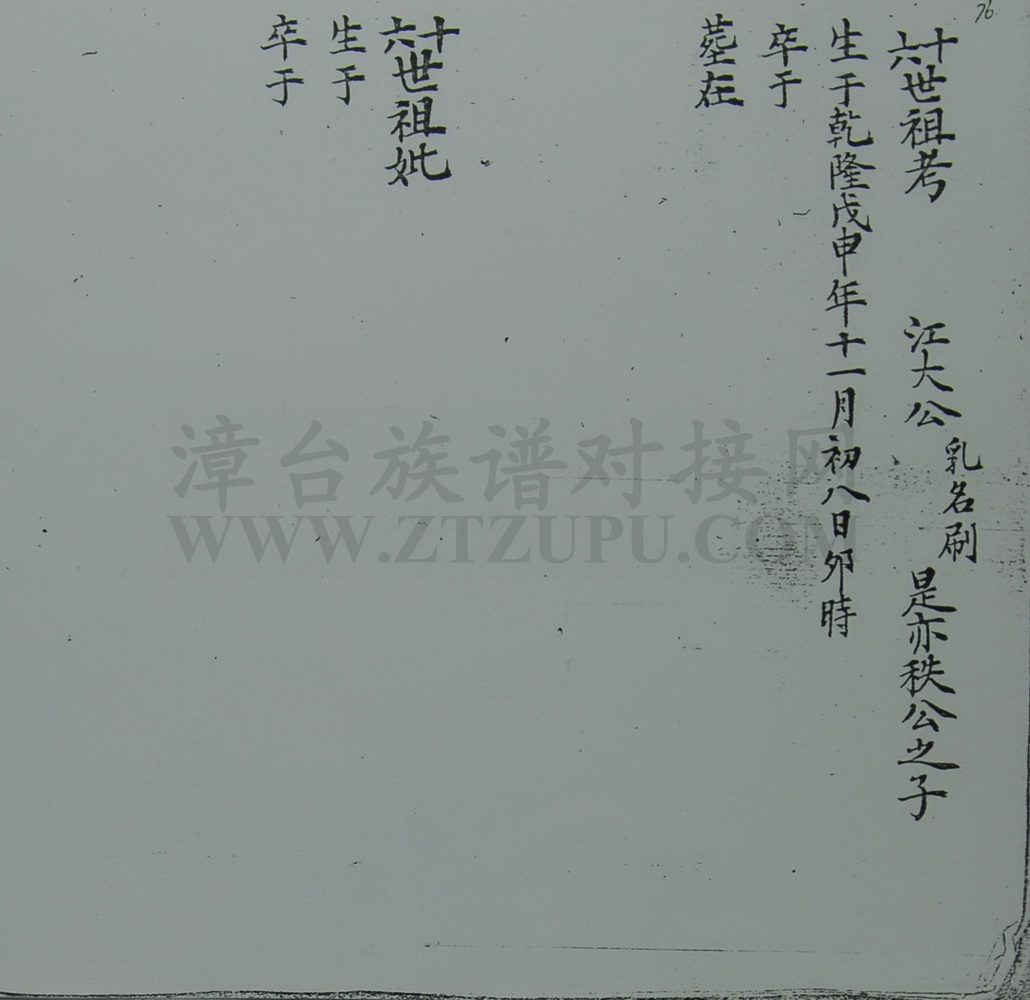 76
十六世祖考 江大公 乳名刷 是亦秩公之子
生于乾隆戊申年十一月初八日卯時
卒于
塟在
十六世祖妣
生于
卒于
漳台族谱对接网
WWW.ZTZUPU.COM